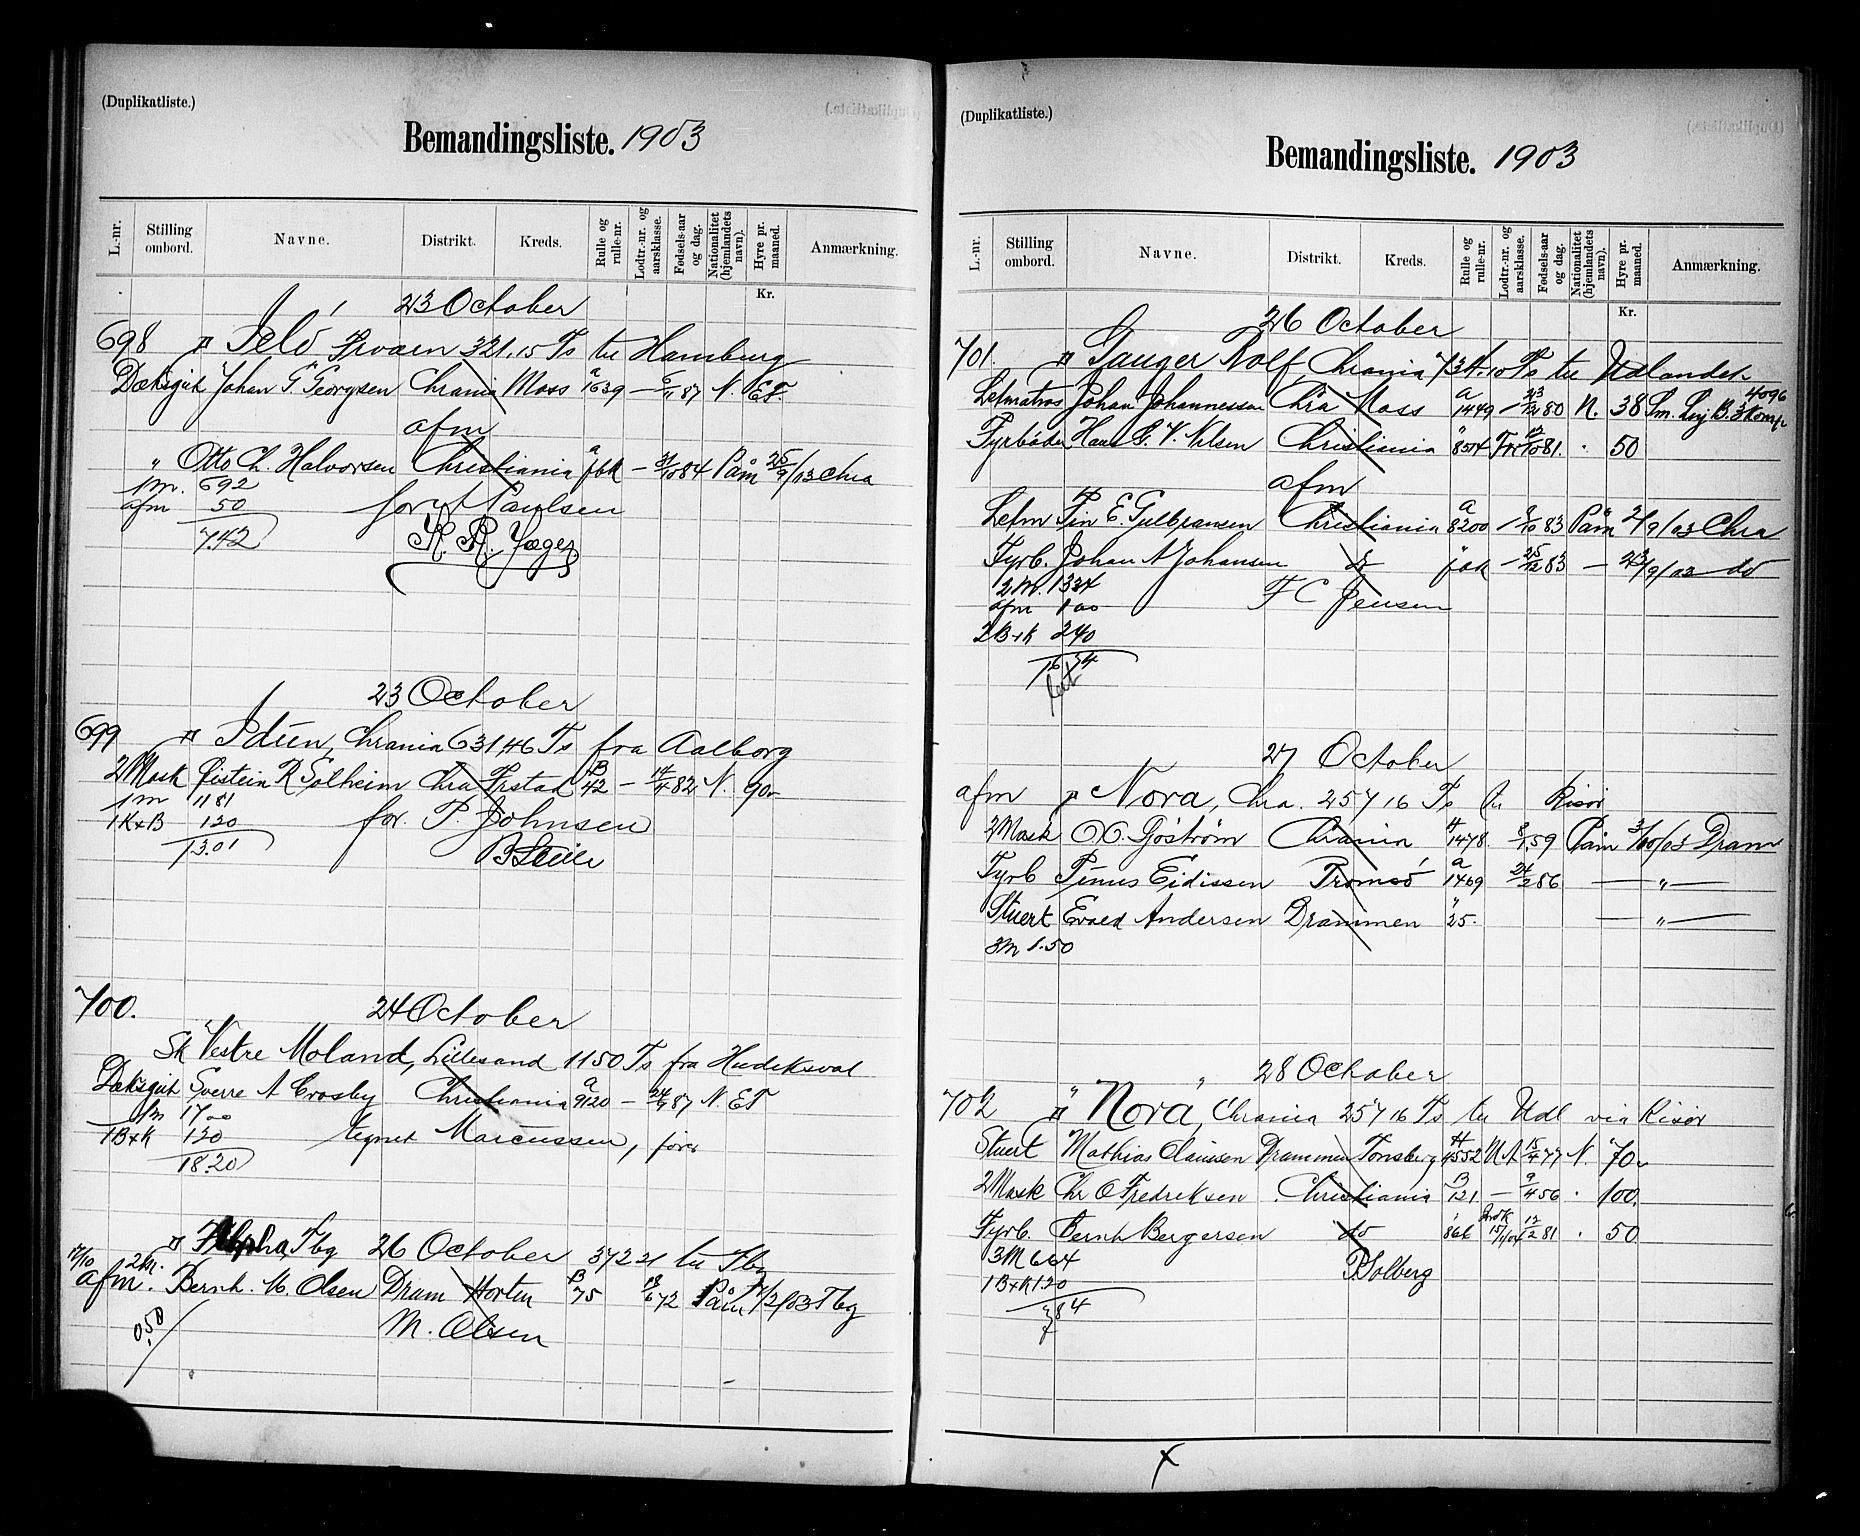 (Duplikatliste.)
Bemandingsliste. 1903
L.-nr. Stilling ombord. Navne. Distrikt. Kreds. Rulle og rulle-nr. Lodtr.-nr. og aarsklasse. Fødsels-aar og dag. Nationalitet (hjemlandets navn). Hyre pr. maaned. Anmærkning.
Kr.
23 October
698 Jelö, 321.15 Ts til Hamburg
Dæksgut Johan Georgsen Chrania Moss a 1639 — 6/11 87 N. E F.
afm
" Otto Ch. Halvorsen Christiania a fok — 31/10 84 Påm 25/9/03 Chra
1m. 692
afm 50
742
for Paulsen
K. R. Jæger
23 October
699 Idun, Chrania 631,46 Ts fra Aalborg
2 Mask Øistein R Solheim Chra Frstad B 42 — 14/4 82 N. 90-
1m 1181
1K+B 120
13.01
for P. Johnsen
700. 24 October
Sk Vestre Moland, Lillesand 1150 Ts fra Hudiksval
Dæksgut Sverre A Crosby Christiania a 9120 — 24/9 87 N. E F
1m 1700
1B+K 120
18.20
tegnet Marcussen, fører
Alpha, Tbg 26 October 372 21 til Tbg
17/10 2M.
afm. Bernh. M. Olsen Dram Horten B 75 13/6 72 Påm /2/03 Tbg
0.50
M. Olsen
(Duplikatliste.)
Bemandingsliste. 1903
L.-nr. Stilling ombord. Navne. Distrikt. Kreds. Rulle og rulle-nr. Lodtr.-nr. og aarsklasse. Fødsels-aar og dag. Nationalitet (hjemlandets navn). Hyre pr. maaned. Anmærkning.
Kr.
26 October
701. Ganger Rolf Chrania 734.10 Ts til Udlandet
4096
Letmatros Johan Johannessen Chra Moss a 1449 — 23/12 80 N. 38 3 Komp
Fyrbøder Hans G. V. Nilsen Christiania " 8514 81. " 50
afm
Letm Fin E. Gulbransen Christiania a 8200 — 83 Påm 2/9/03 Chra
Fyrb. Johan A Johansen do fok — 25/12 83 — 23/9/03 do
2M. 1334
afm 100
2B+K 240
16 74
F C Jensen
27 October
afm Nora, Chra. 257 16 Ts til Risør
2 Mask O. Göström Chrania A 1478. 8/1 59 Påm 3/10/03 Dram
Fyrb Pinus Eidissen Tromsö a 1469 24/2 86 — " —
Stuert Evald Andersen Drammen " 25. — " —
3M 1.50
28 October
702 " Nora, Chrania 257 16 Ts til Udl via Risør
Stuert Mathias Claussen Drammen Tønsberg A 4552 U A 15/4 77 N. 70.
2 Mask Chr O Fredriksen Christiania B 121 — 9/4 56 " 100.
Fyrb. Bernh Bergersen do " 866 12/2 81 " 50
3M 664
1B+K 120
784
Solberg
x